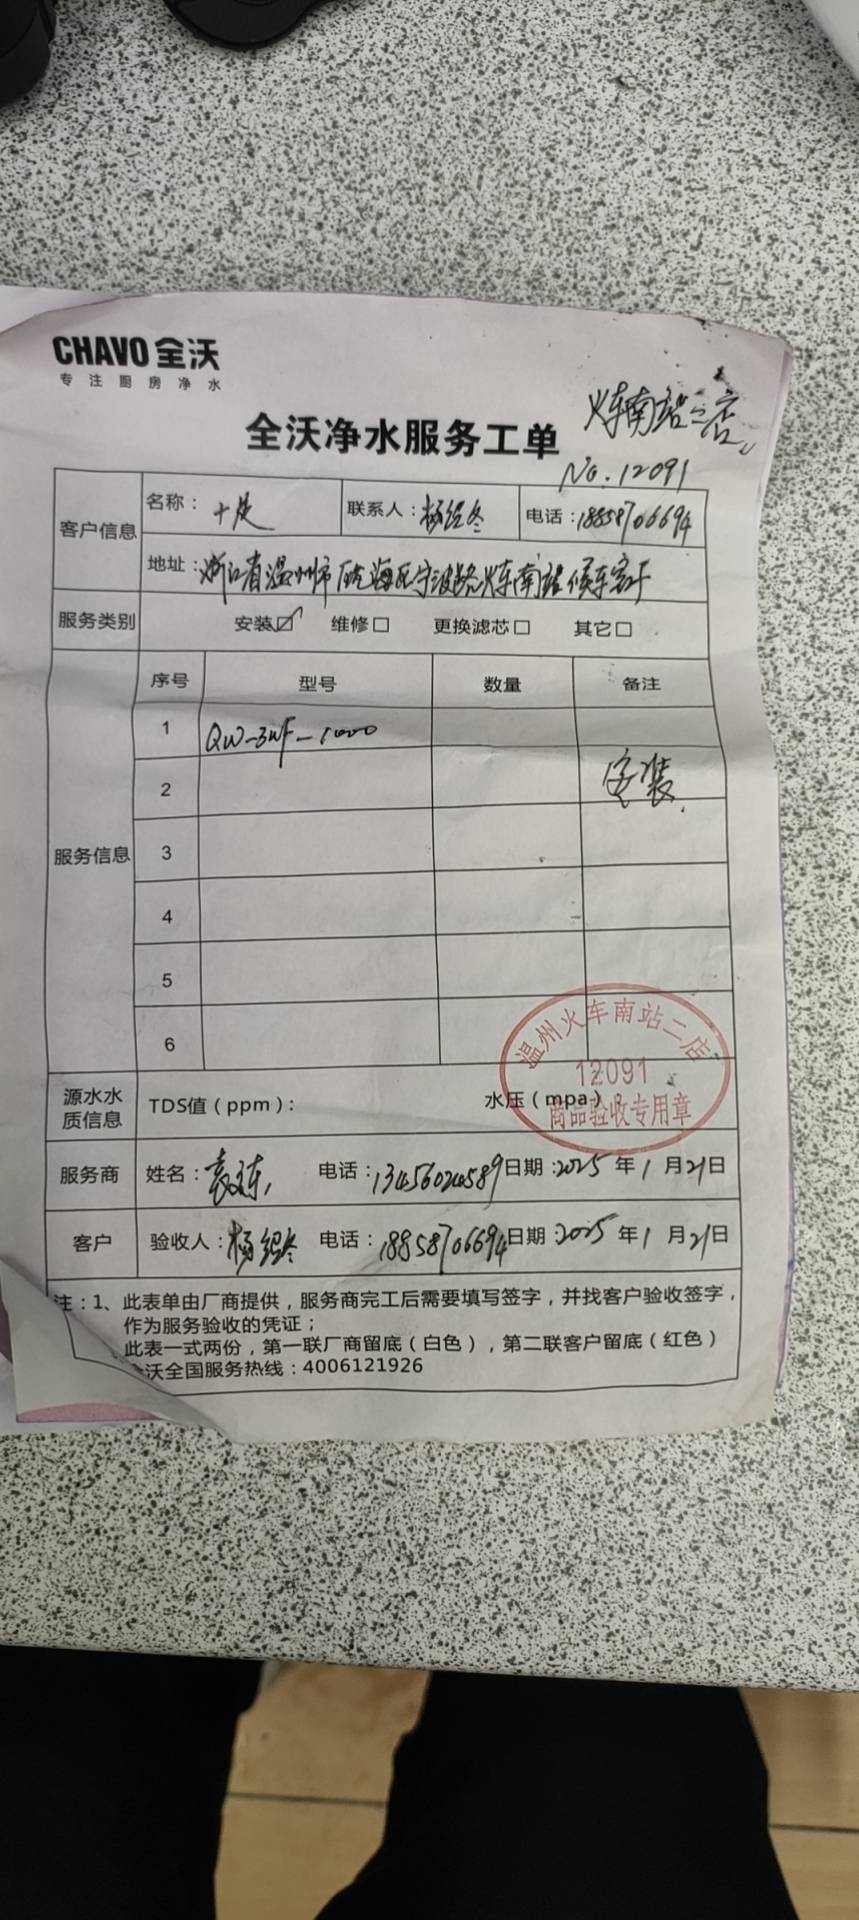 CHAVO 全沃
专注厨房净水
火车南站二店
全沃净水服务工单
No.12091
客户信息
名称：十足
联系人：杨绍冬
电话：18858706694
地址：浙江省温州市瓯海区宁波路火车南站候车室
服务类别
安装☑ 维修□ 更换滤芯□ 其它□
服务信息
序号 型号 数量 备注
1 QW-3WF-1000
2 安装
3
4
5
6
温州火车南站二店
12091
商品验收专用章
源水水质信息
TDS值（ppm）： 水压（mpa）：
服务商 姓名： 电话：13456024589 日期：2025年1月21日
客户 验收人：杨绍冬 电话：18858706694 日期：2025年1月21日
注：1、此表单由厂商提供，服务商完工后需要填写签字，并找客户验收签字，
作为服务验收的凭证；
此表一式两份，第一联厂商留底（白色），第二联客户留底（红色）
沃全国服务热线：4006121926